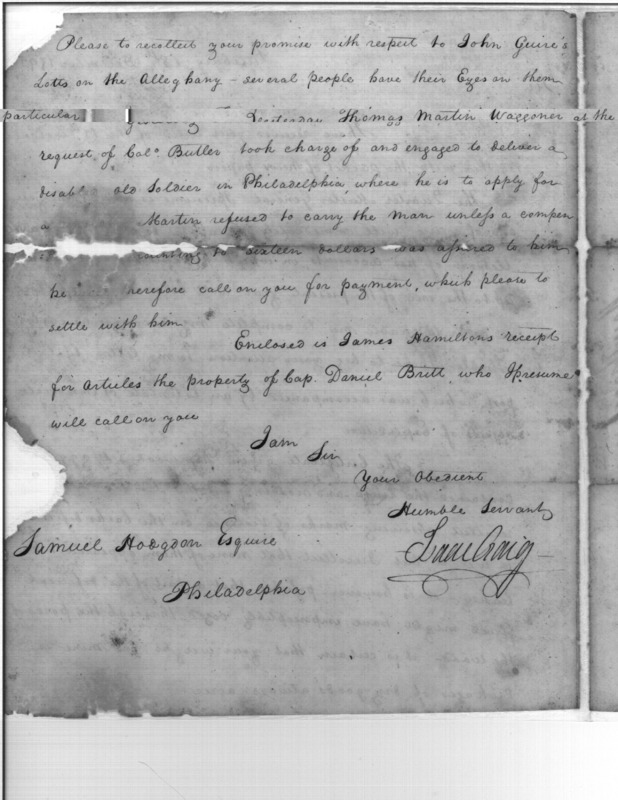 Please to recollect your promise with respect to John Guire's
Lotts on the Alleghany – several people have their Eyes on them
particular Yesterday Thomas Martin Waggoner at the
request of Colo. Butler took charge of and engaged to deliver a
old Soldier in Philadelphia where he is to apply for
a Martin refused to carry the man unless a compen
to sixteen dollars was assured to him
he herefore call on you for payment, which please to
settle with him
Enclosed is James Hamiltons receipt
for articles the property of Cap. Daniel Britt who I presume
will call on you
I am
Sir
Your Obedient
Humble Servant
Isaac Craig
Samuel Hodgdon Esquire
Philadelphia